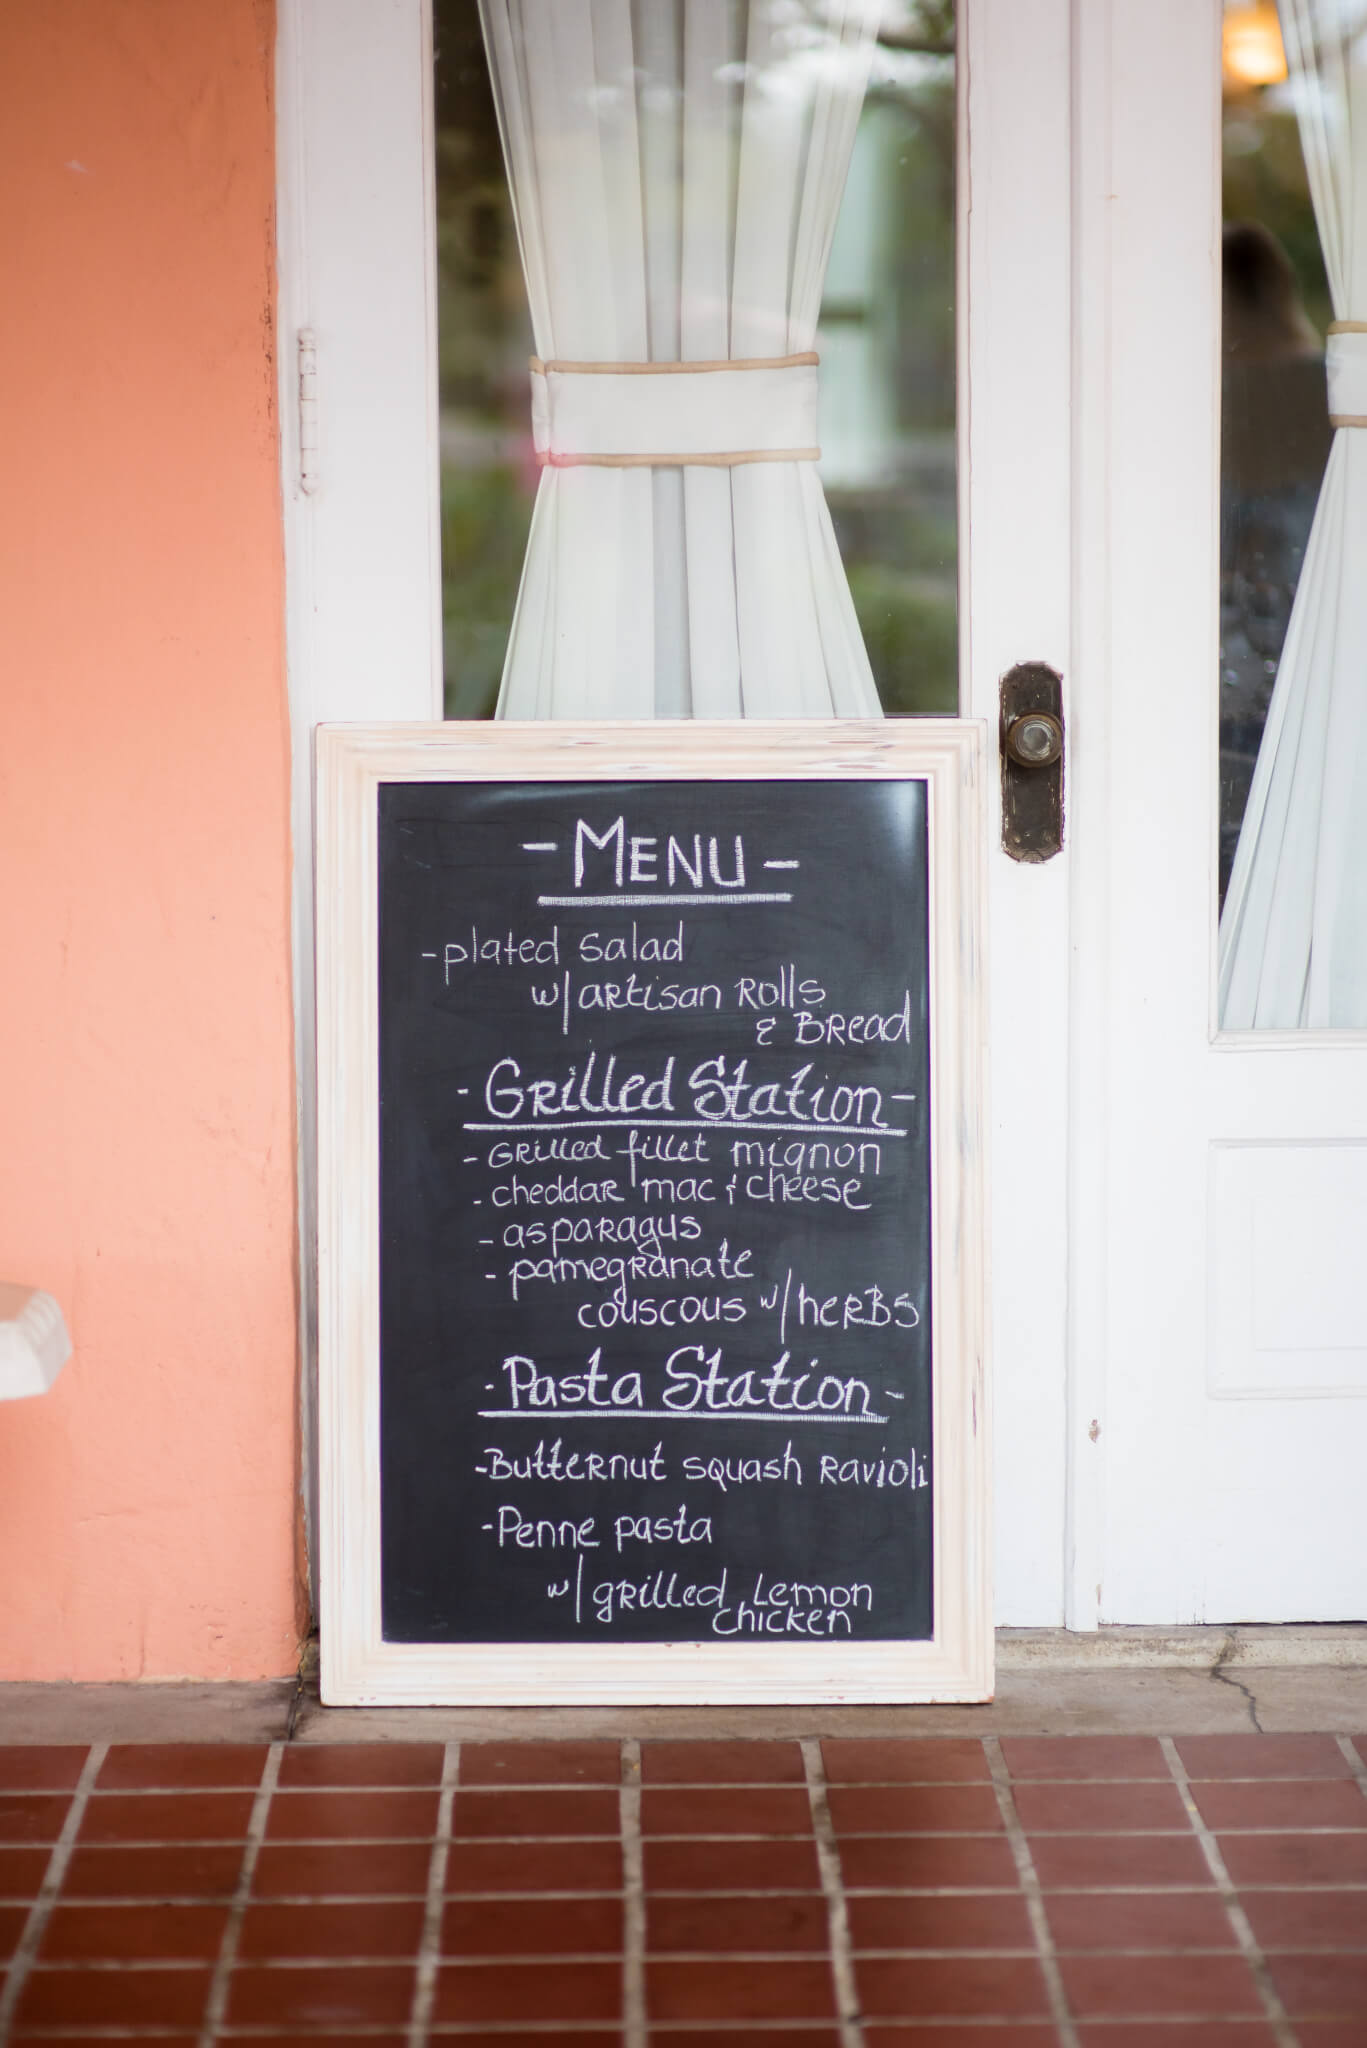 - MENU -
- plated salad
w/ artisan Rolls
& BRead
- GRilled Station -
- GRilled fillet mignon
- cheddaR mac & cheese
- aspaRagus
- pamegRanate
couscous w/ heRBs
- Pasta Station -
- ButteRnut squash Ravioli
- Penne pasta
w/ gRilled Lemon
chicken